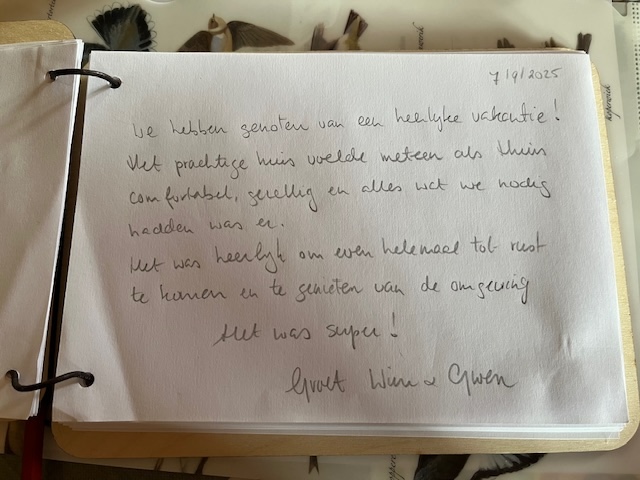 7/9/2025
We hebben genoten van een heerlijke vakantie!
Het prachtige huis voelde meteen als thuis
comfortabel, gezellig en alles wat we nodig
hadden was er.
Het was heerlijk om even helemaal tot rust
te komen en te genieten van de omgeving
Het was super!
Groet Wim & Gwen